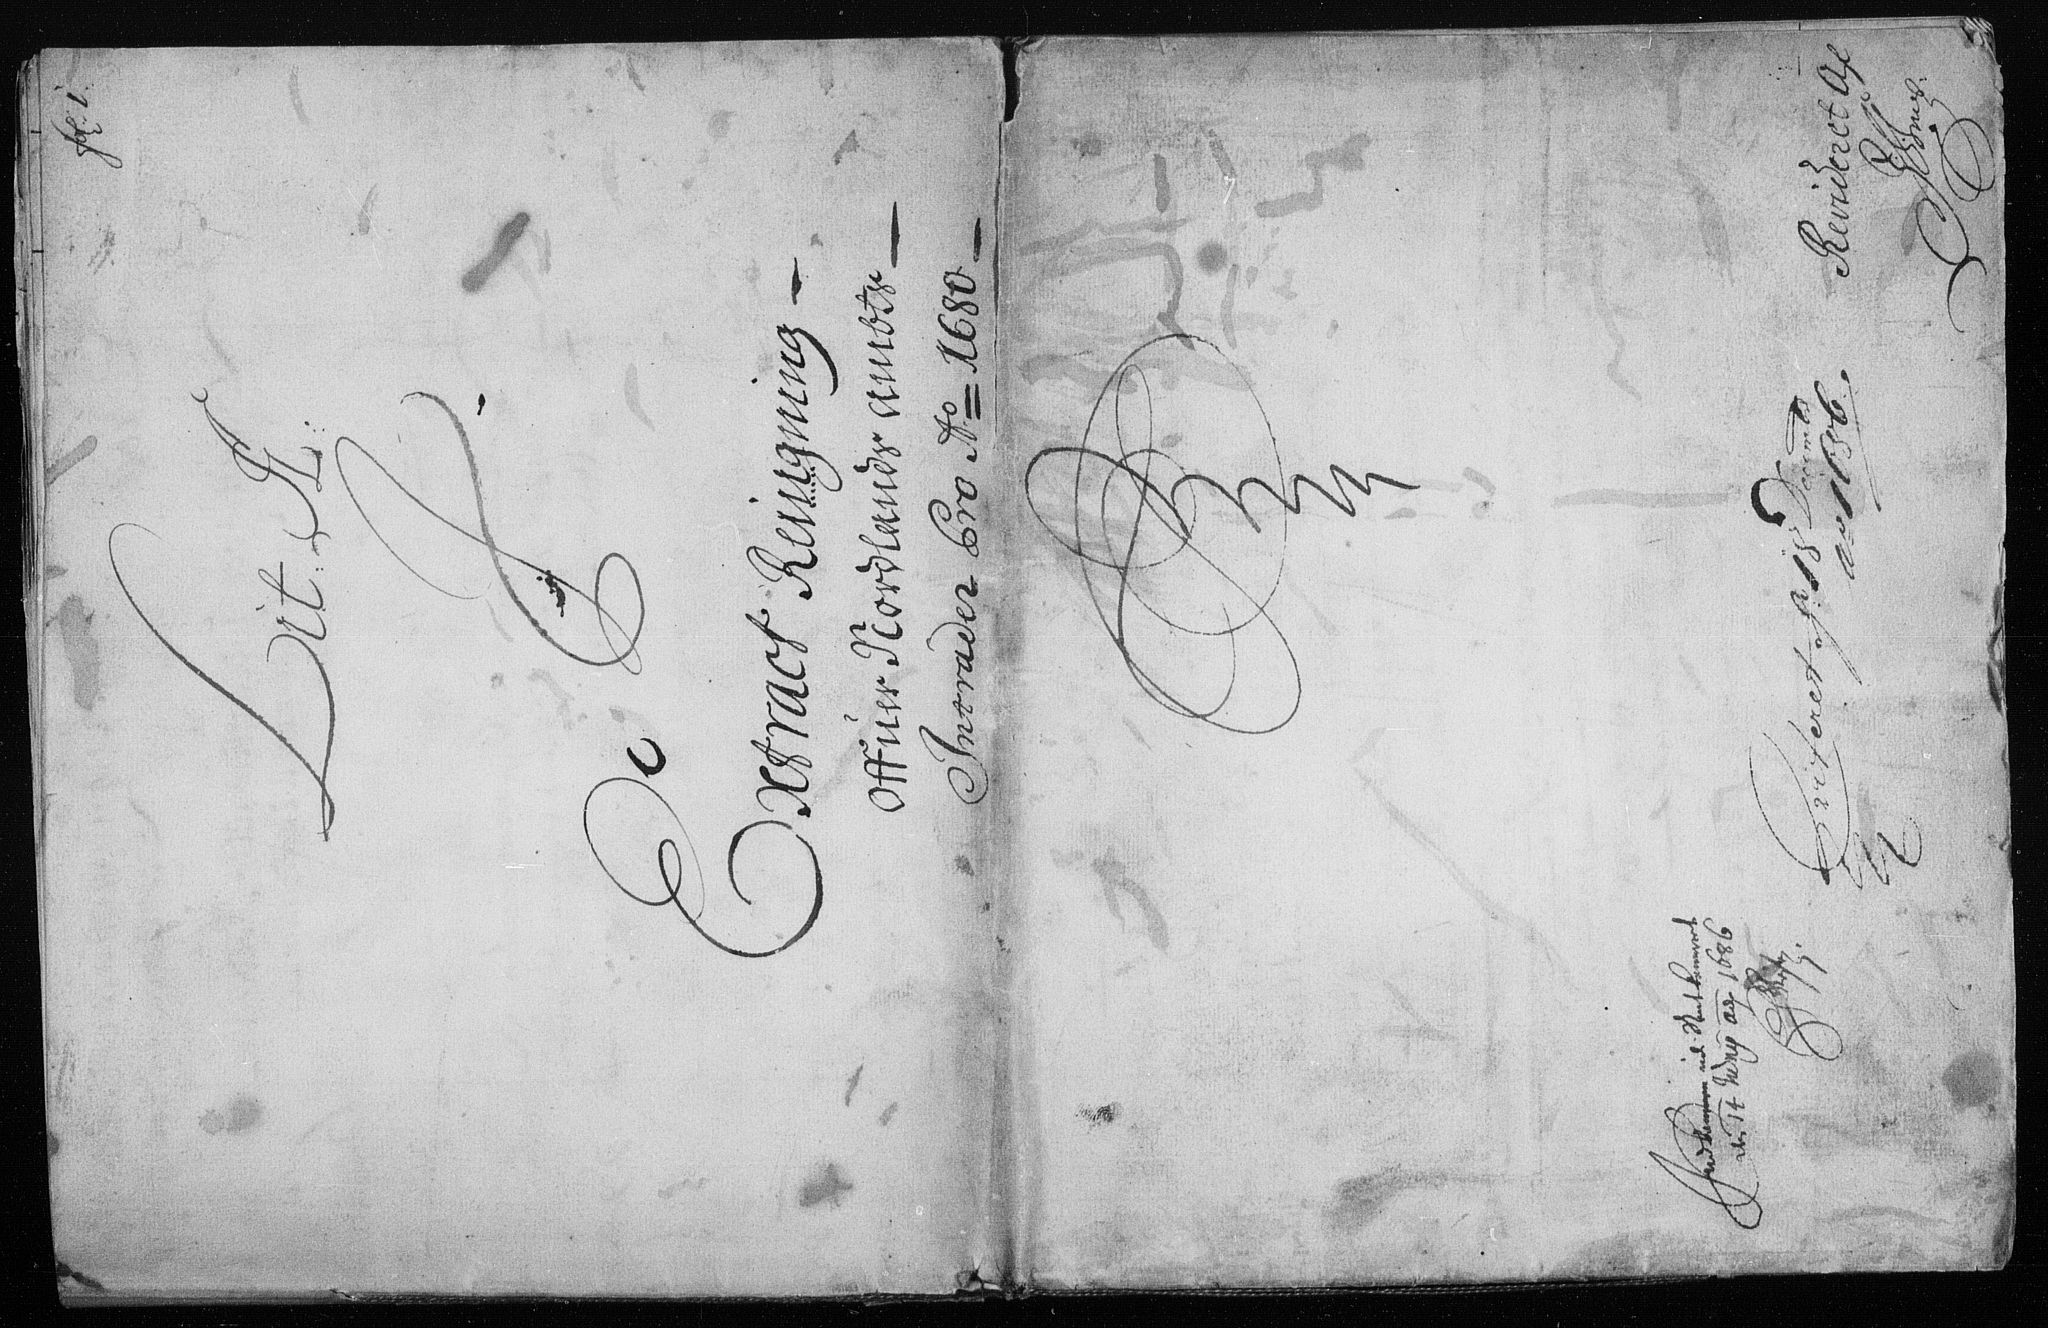 fol: 1.
Lit: H:
Extract Reigning
offuer Nordlands ambts
Intrader Pro Ao 1680
Indkommen udi Rentkammeret
den 14 Junij Ao 1686
Qviteret d: 18 Decemb:
ao 1686.
Revideret Af